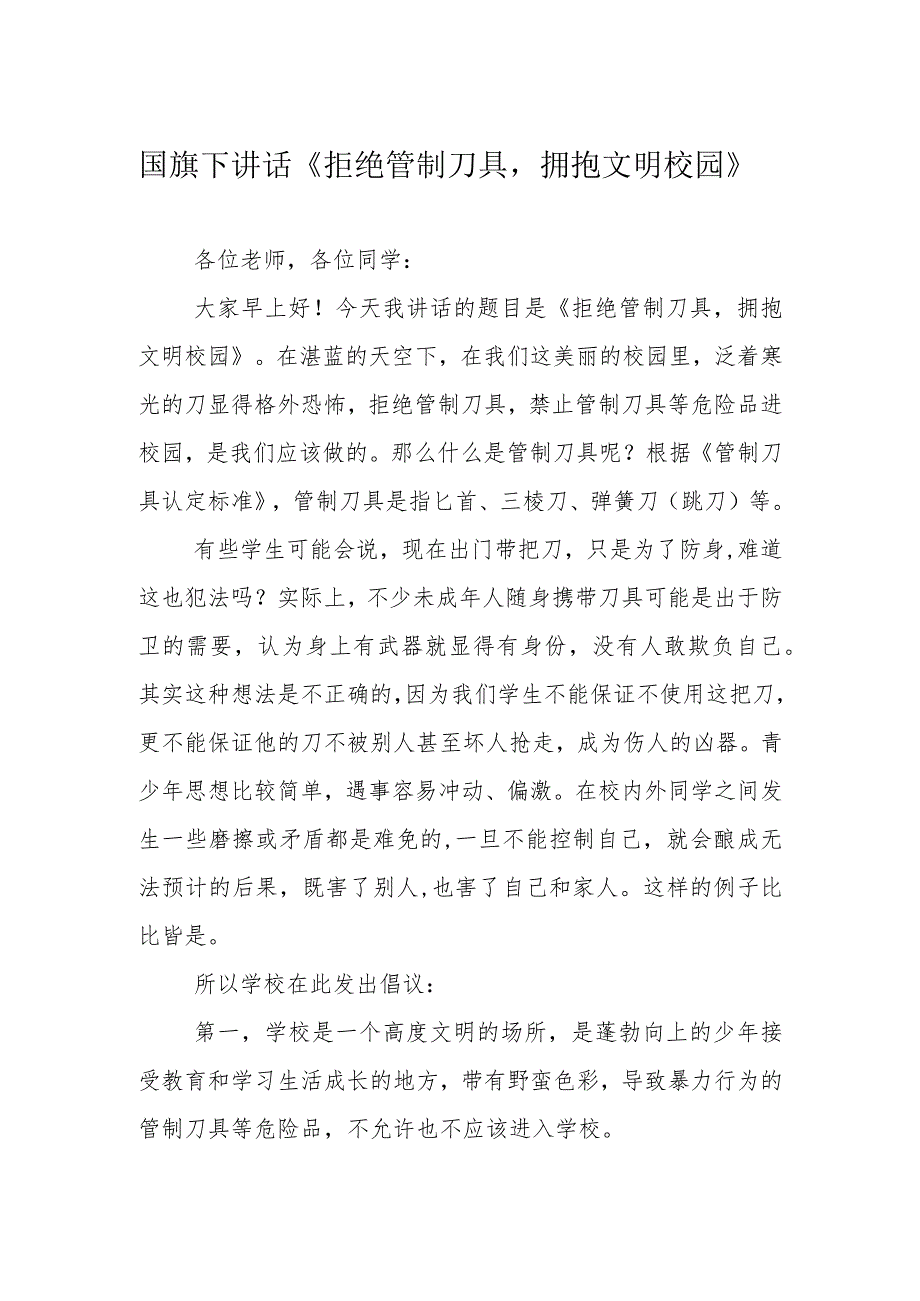 国旗下讲话《拒绝管制刀具，拥抱文明校园》
各位老师，各位同学：
大家早上好！今天我讲话的题目是《拒绝管制刀具，拥抱
文明校园》。在湛蓝的天空下，在我们这美丽的校园里，泛着寒
光的刀显得格外恐怖，拒绝管制刀具，禁止管制刀具等危险品进
校园，是我们应该做的。那么什么是管制刀具呢？根据《管制刀
具认定标准》，管制刀具是指匕首、三棱刀、弹簧刀（跳刀）等。
有些学生可能会说，现在出门带把刀，只是为了防身,难道
这也犯法吗？实际上，不少未成年人随身携带刀具可能是出于防
卫的需要，认为身上有武器就显得有身份，没有人敢欺负自己。
其实这种想法是不正确的,因为我们学生不能保证不使用这把刀，
更不能保证他的刀不被别人甚至坏人抢走，成为伤人的凶器。青
少年思想比较简单，遇事容易冲动、偏激。在校内外同学之间发
生一些磨擦或矛盾都是难免的,一旦不能控制自己，就会酿成无
法预计的后果，既害了别人,也害了自己和家人。这样的例子比
比皆是。
所以学校在此发出倡议：
第一，学校是一个高度文明的场所，是蓬勃向上的少年接
受教育和学习生活成长的地方，带有野蛮色彩，导致暴力行为的
管制刀具等危险品，不允许也不应该进入学校。